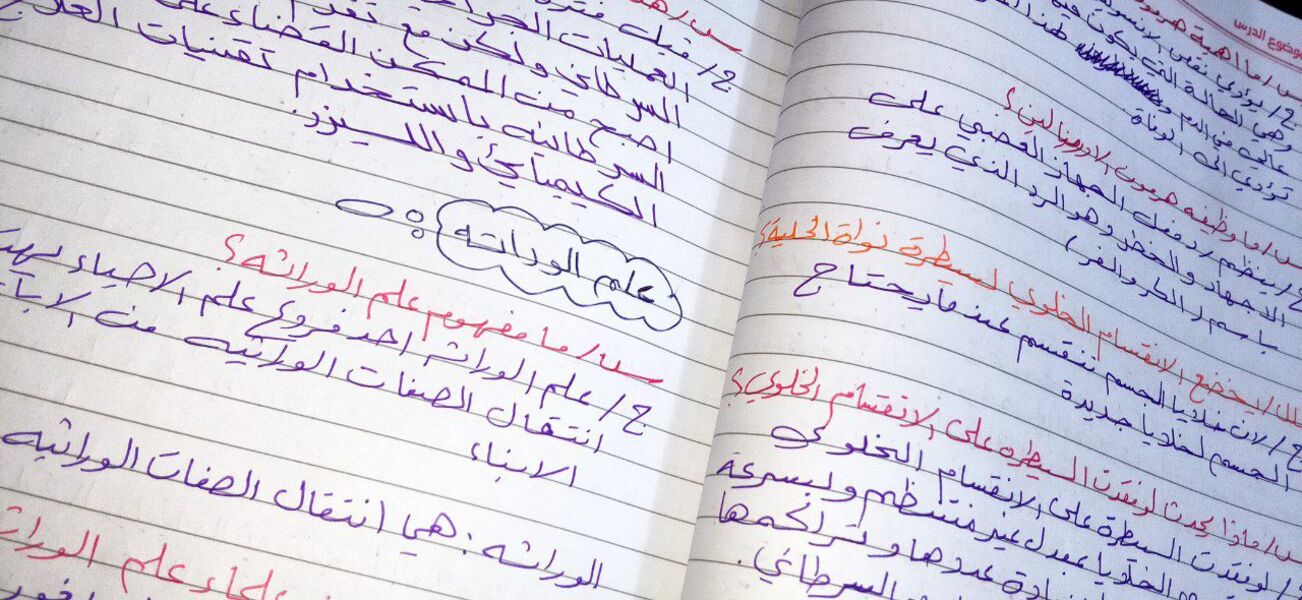 موضوع الدرس
س/ما اهمية هرمون
ج/ يؤدي نقص الانسولين
وهي الحالة التي يكون فيها
عالي في الدم
تؤدي الى الوفاة
س/ما وظيفه هرمون الادرينالين؟
ج/ ينظم رد فعل الجهاز العصبي على
الاجهاد والخطر وهو الرد الذي يعرف
باسم (الكر والفر)
علل/يخضع الانقسام الخلوي لسيطرة نواة الخلية؟
ج/لان خلايا الجسم تنقسم عندما يحتاج
الجسم لخلايا جديدة
س/ماذا يحدث لو فقدت السيطره على الانقسام الخلوي؟
ج/ لو فقدت السيطرة على الانقسام الخلوي
الخلايا بمعدل غير منتظم وبسرعة
زيادة عددها وتراكمها
السرطاني.
س/
ج/ قبل فترة
العمليات الجراحية
السرطاني ولكن مع تقدم
اصبح من الممكن القضاء على
السرطانيه باستخدام تقنيات العلاج
الكيميائي والليزر.
علم الوراثه
س/ما مفهوم علم الوراثه؟
ج/ علم الوراثه احد فروع علم الاحياء يهتم
انتقال الصفات الوراثيه من الاباء
الابناء
الوراثه: هي انتقال الصفات الوراثيه
علماء علم الوراثه